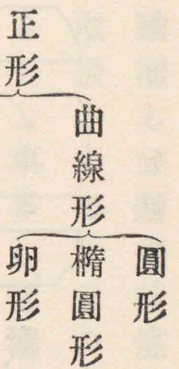 正形
曲線形
圓形
橢圓形
卵形